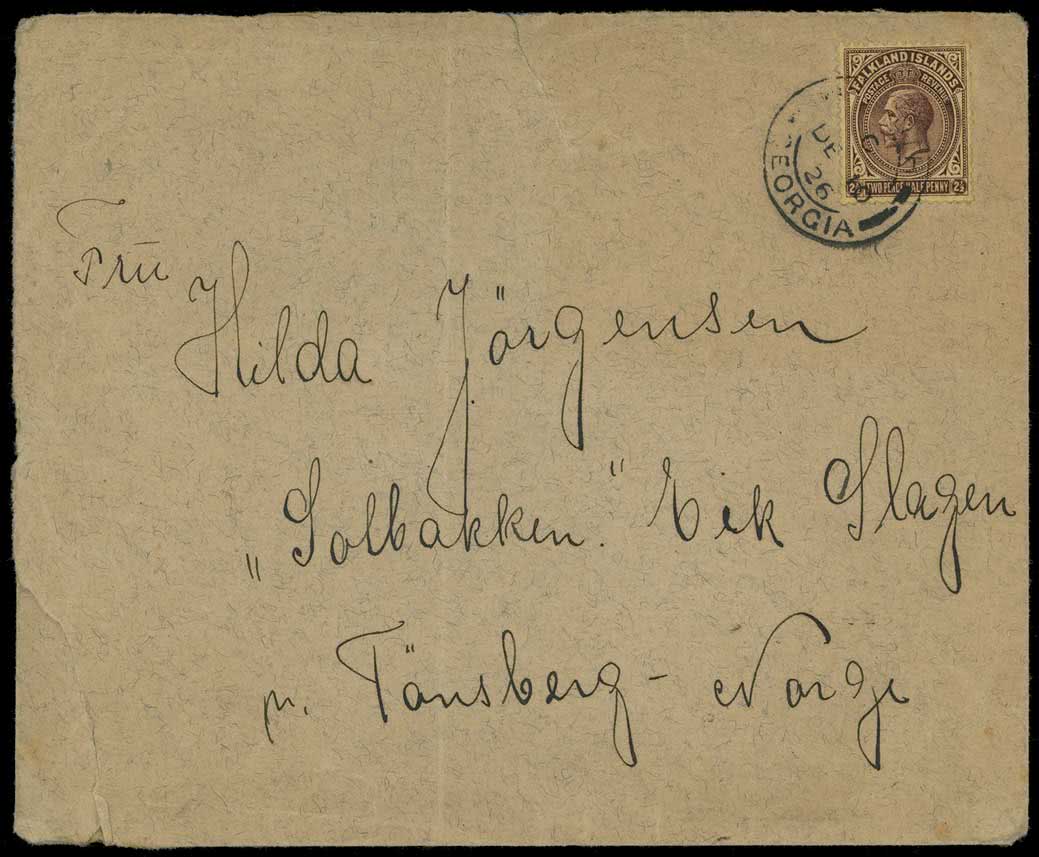 FALKLAND ISLANDS
POSTAGE REVENUE
2½ TWO PENCE HALF PENNY 2½
DE
26
EORGIA
Frü
Hilda Jörgensen
„Solbakken." Eik Slagen
pr. Tönsberg - Norge